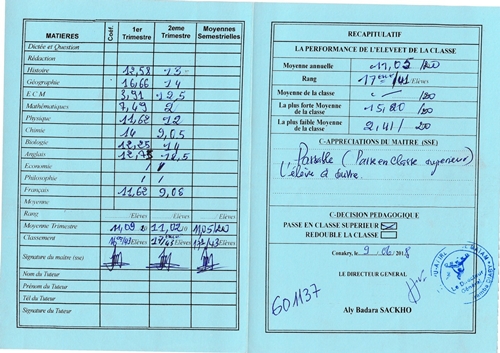 MATIERES Coéf. 1er Trimestre 2eme Trimestre Moyennes Semestrielles
Dictée et Question
Rédaction
Histoire 12,58 13
Géographie 16,66 14
E C M 3,91 12,5
Mathématiques 7,49 2
Physique 11,62 12
Chimie 14 9,05
Biologie 12,25 14
Anglais 12,75
Economie
Philosophie
Français 11,62 9,06
Moyenne
Rang /Elèves /Elèves /Elèves
Moyenne Trimestre 11,09 20 11,02 20 11,05/20
Classement /Elèves /Elèves /Elèves
Signature du maître (sse)
Nom du Tuteur
Prénom du Tuteur
Tél du Tuteur
Signature du Tuteur
RECAPITULATIF
LA PERFORMANCE DE L'ELEVEET DE LA CLASSE
Moyenne annuelle 11,05 /20
Rang 17 /41/Elèves
Moyenne de la classe /20
La plus forte Moyenne de la classe 15,20 /20
La plus faible Moyenne de la classe 2,41 / 20
C-APPRECIATIONS DU MAITRE (SSE)
Passable (Passe en classe superieur)
L'élève à suivre.
C-DECISION PEDAGOGIQUE
PASSE EN CLASSE SUPERIEUR
REDOUBLE LA CLASSE
Conakry, le 9 /06 /2018
LE DIRECTEUR GENERAL
601137
Le Directeur Général
Aly Badara SACKHO